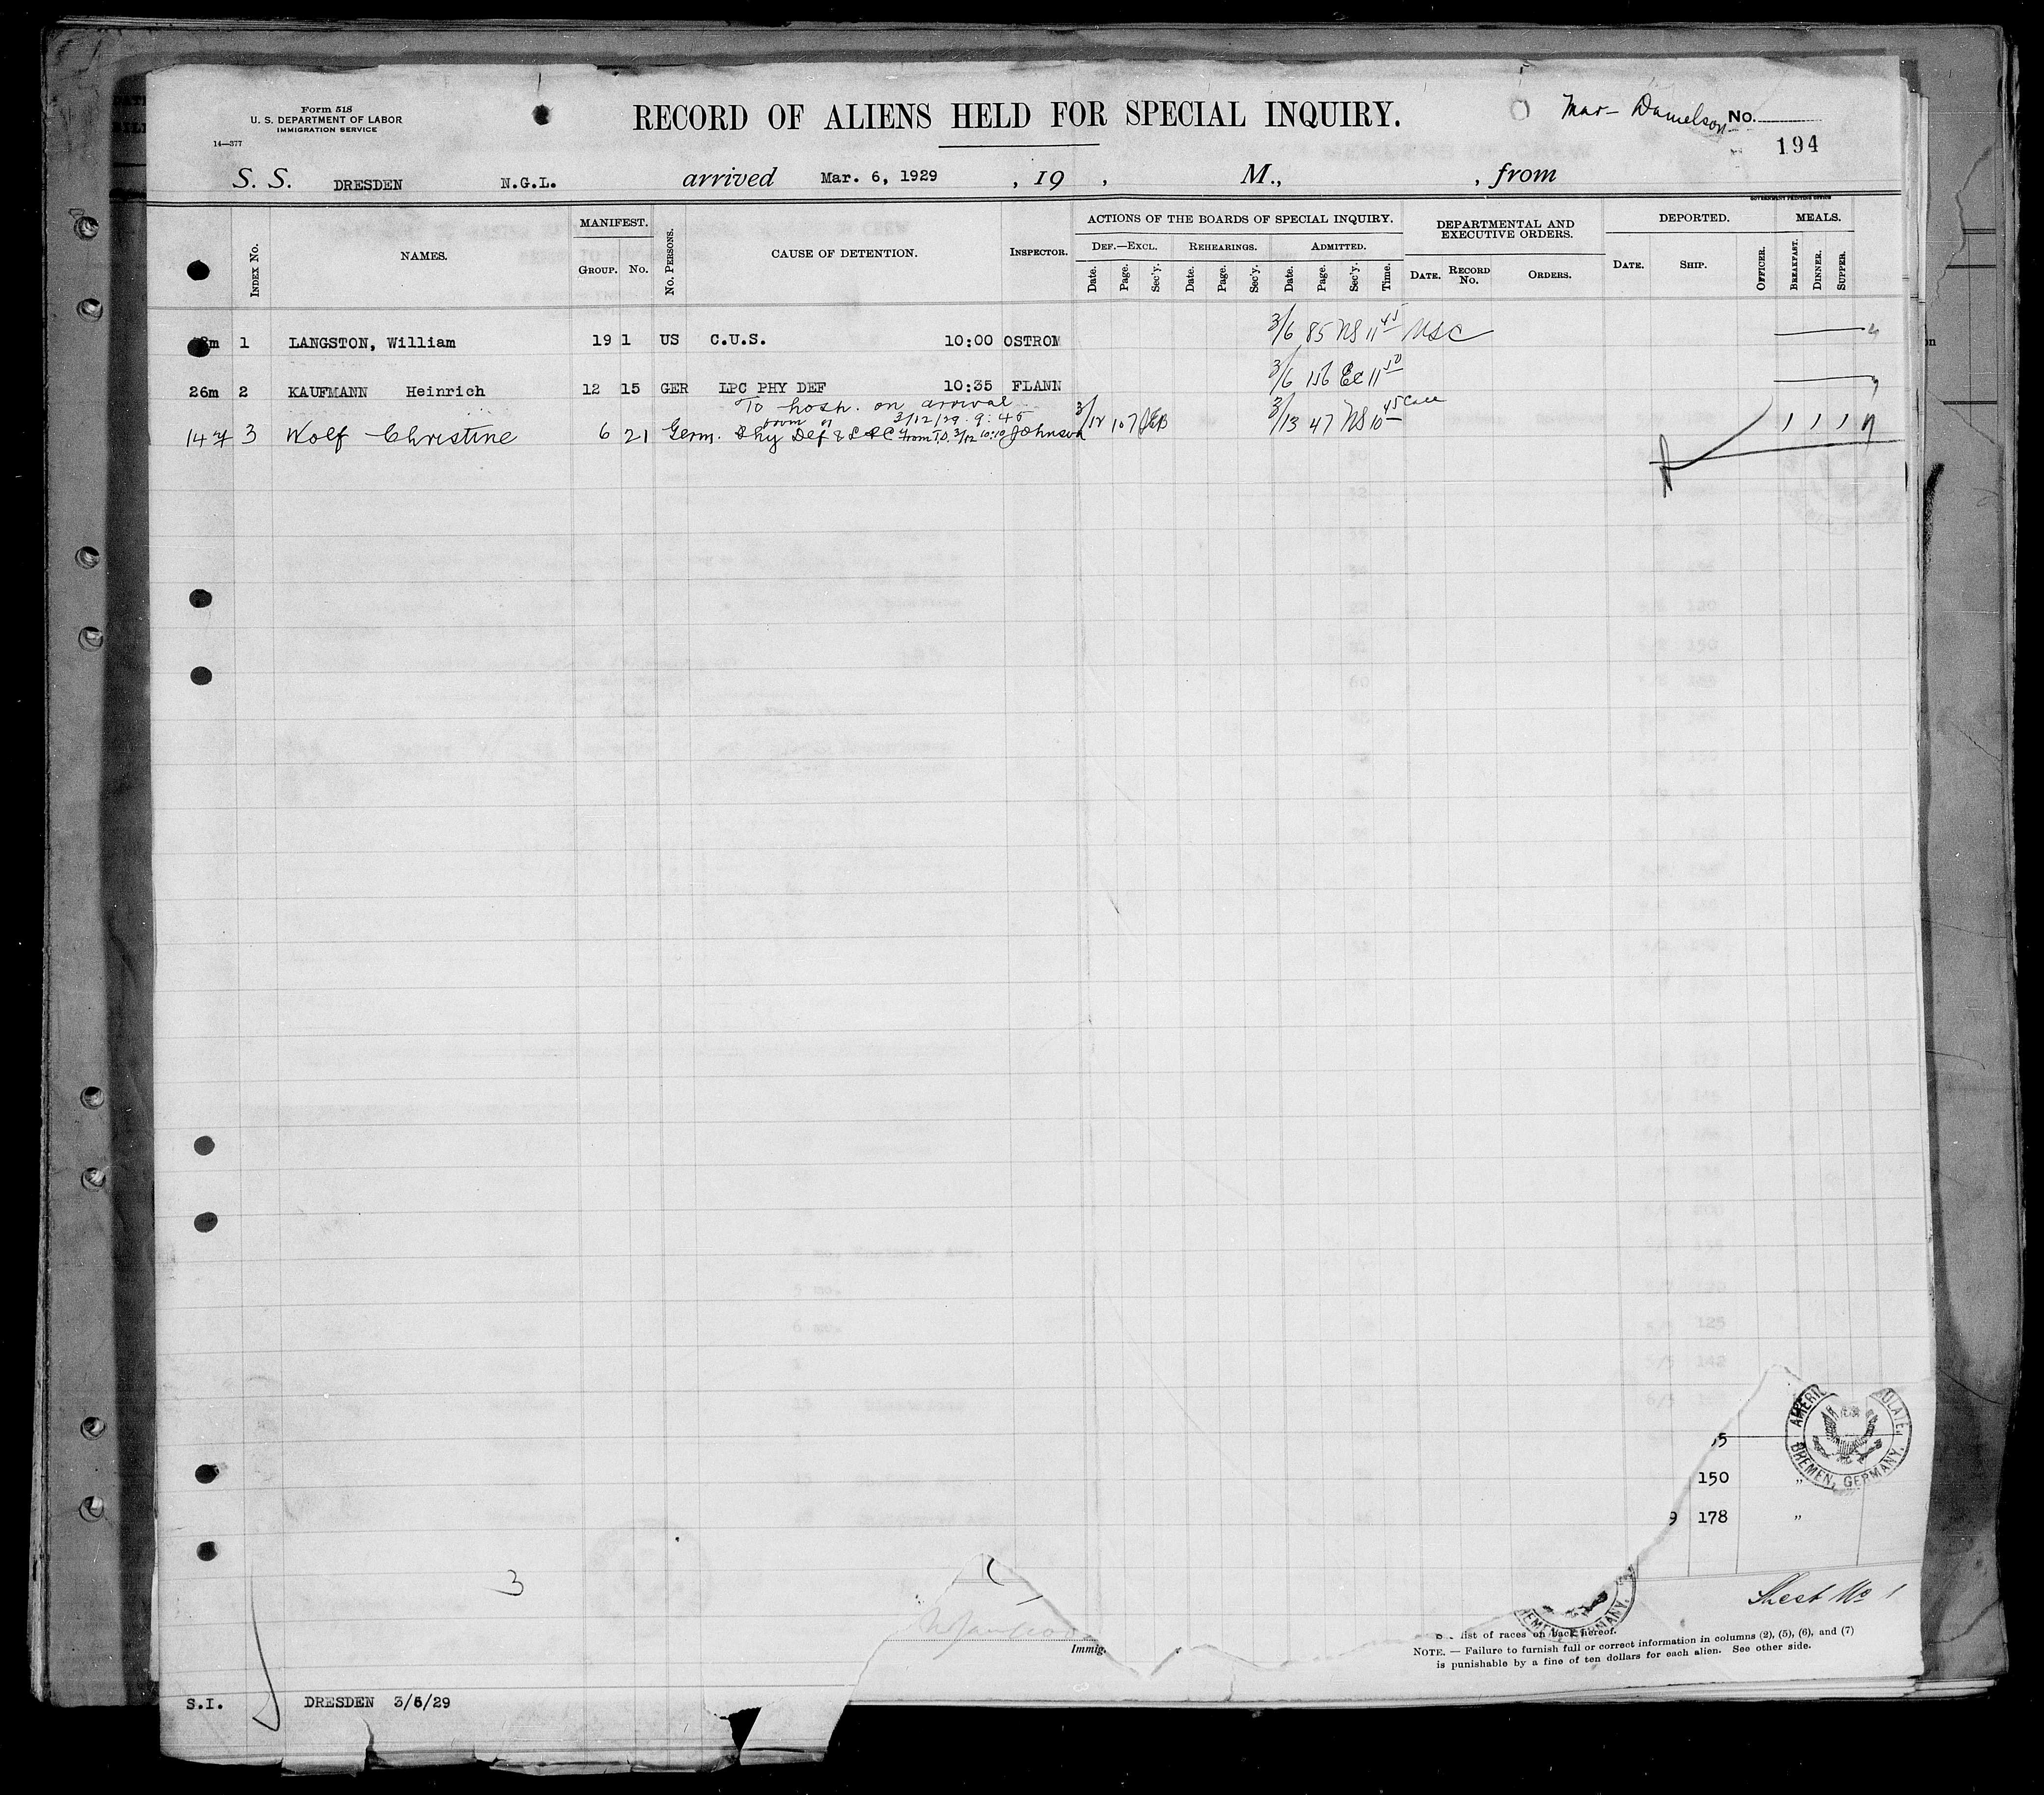 Form 518
U. S. DEPARTMENT OF LABOR
IMMIGRATION SERVICE
14—377
RECORD OF ALIENS HELD FOR SPECIAL INQUIRY.
Mar- Danielson No.
194
S. S. DRESDEN N.G.L. arrived Mar. 6, 1929 , 19 , M., , from
GOVERNMENT PRINTING OFFICE
INDEX No. NAMES. MANIFEST. GROUP. No. No. PERSONS. CAUSE OF DETENTION. INSPECTOR. ACTIONS OF THE BOARDS OF SPECIAL INQUIRY. DEPARTMENTAL AND EXECUTIVE ORDERS. DEPORTED. MEALS.
DEF.—EXCL. REHEARINGS. ADMITTED.
Date. Page. Sec'y. Date. Page. Sec'y. Date. Page. Sec'y. Time. DATE. RECORD No. ORDERS. DATE. SHIP. OFFICER. BREAKFAST. DINNER. SUPPER.
1 LANGSTON, William 19 1 US C.U.S. 10:00 OSTROM 3/6 85 NS 11 45 USC
26m 2 KAUFMANN Heinrich 12 15 GER LPC PHY DEF 10:35 FLANN 3/6 156 EC 11 50
To hosp. on arrival
from " 3/12/29 9:45
14 f 3 Wolf Christine 6 21 Germ. Phy Def & LPC from T.D. 3/12 10:10 Johnson 3/12 107 3/13 47 NS 10 45
35
150 "
9 178 "
AMERI ULATE, BREMEN, GERMANY.
3
EMEN, GERMANY.
Sheet No 1
Immig
list of races on back hereof.
NOTE. — Failure to furnish full or correct information in columns (2), (5), (6), and (7)
is punishable by a fine of ten dollars for each alien. See other side.
S.I. DRESDEN 3/6/29